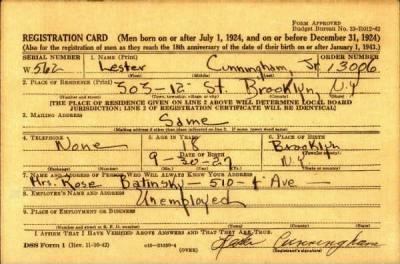 FORM APPROVED
Budget Bureau No. 33-R012-42
REGISTRATION CARD (Men born on or after July 1, 1924, and on or before December 31, 1924)
(Also for the registration of men as they reach the 18th anniversary of the date of their birth on or after January 1, 1943.)
SERIAL NUMBER 1. NAME (Print) ORDER NUMBER
W 562 Lester Cunningham, Jr 13006
(First) (Middle) (Last)
2. PLACE OF RESIDENCE (Print)
505-12- St. Brooklyn, N.Y
(Number and street) (Town, township, village, or city) (County) (State)
[THE PLACE OF RESIDENCE GIVEN ON LINE 2 ABOVE WILL DETERMINE LOCAL BOARD
JURISDICTION; LINE 2 OF REGISTRATION CERTIFICATE WILL BE IDENTICAL]
3. MAILING ADDRESS
Same
(Mailing address if other than place indicated on line 2. If same, insert word same)
4. TELEPHONE 5. AGE IN YEARS 6. PLACE OF BIRTH
None 18 Brooklyn
DATE OF BIRTH (Town or county)
9-30-27 N.Y
(Exchange) (Number) (Mo.) (Day) (Yr.) (State or country)
7. NAME AND ADDRESS OF PERSON WHO WILL ALWAYS KNOW YOUR ADDRESS
Mrs. Rose Batinsky - 510-4 Ave
8. EMPLOYER'S NAME AND ADDRESS
Unemployed
9. PLACE OF EMPLOYMENT OR BUSINESS
(Number and street or R. F. D. number) (Town) (County) (State)
I AFFIRM THAT I HAVE VERIFIED ABOVE ANSWERS AND THAT THEY ARE TRUE.
DSS Form 1 (Rev. 11-16-42) (OVER) Lester Cunningham
(Registrant's signature)